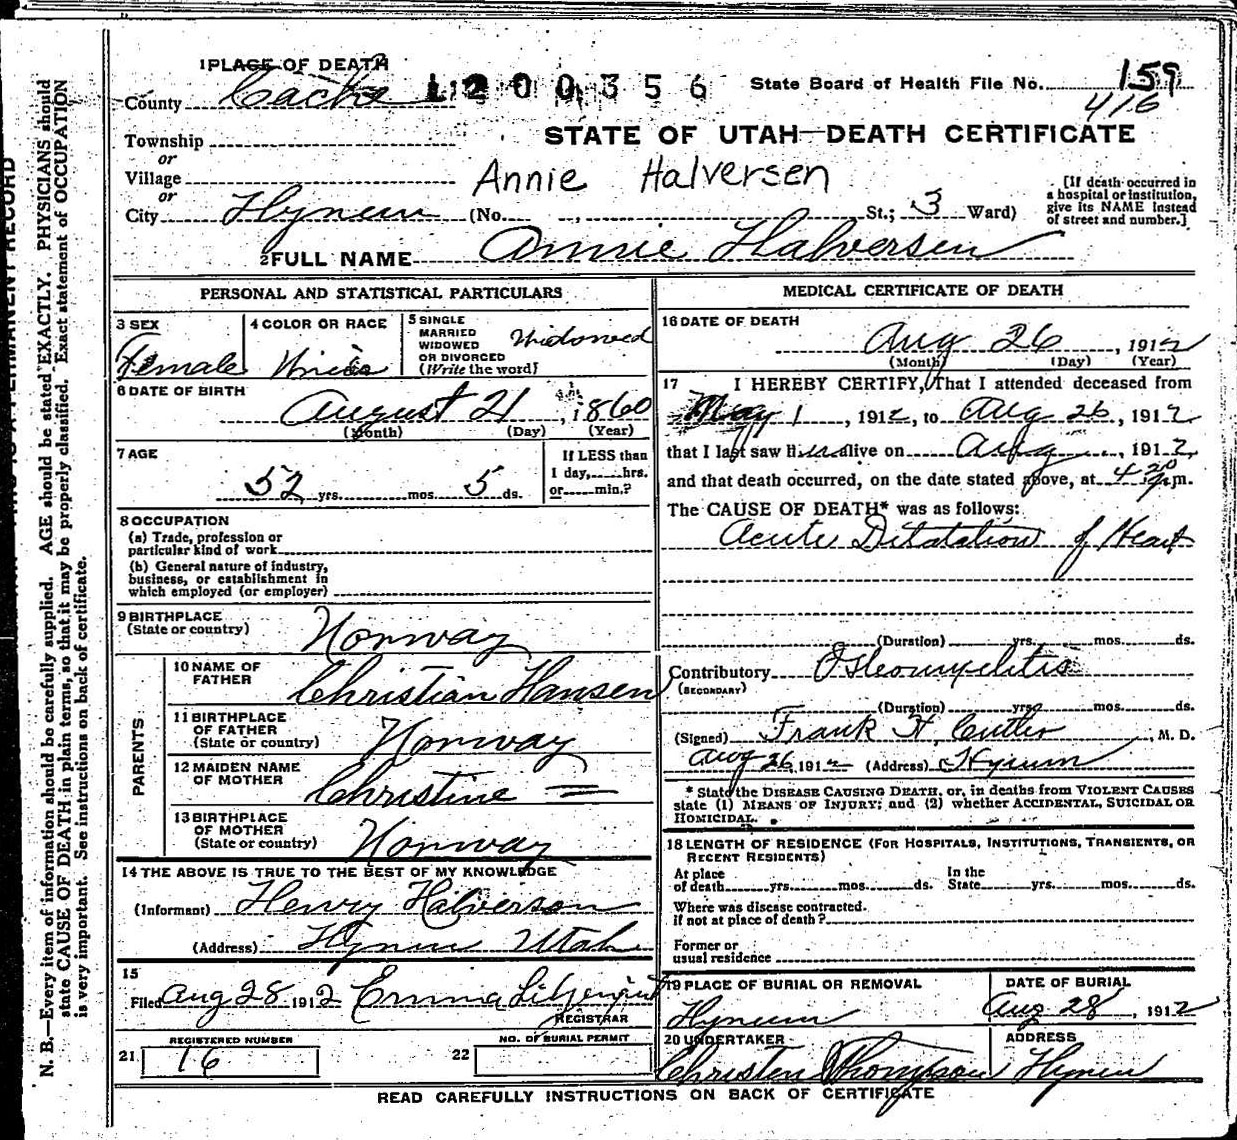 1 PLACE OF DEATH
County Cache
1200356
State Board of Health File No. 159
416
Township
or
Village
or
City Hyrum (No. , St.; 3 Ward)
STATE OF UTAH—DEATH CERTIFICATE
Annie Halversen
[If death occurred in
a hospital or institution,
give its NAME instead
of street and number.]
2 FULL NAME Annie Halversen
PERSONAL AND STATISTICAL PARTICULARS
3 SEX
Female
4 COLOR OR RACE
White
5 SINGLE
MARRIED
WIDOWED
OR DIVORCED
(Write the word)
Widowed
6 DATE OF BIRTH
August 21, 1860
(Month) (Day) (Year)
7 AGE
52 yrs. mos. 5 ds.
If LESS than
1 day, hrs.
or min.?
8 OCCUPATION
(a) Trade, profession or
particular kind of work
(b) General nature of industry,
business, or establishment in
which employed (or employer)
9 BIRTHPLACE
(State or country)
Norway
PARENTS
10 NAME OF
FATHER
Christian Hansen
11 BIRTHPLACE
OF FATHER
(State or country)
Norway
12 MAIDEN NAME
OF MOTHER
Christine
13 BIRTHPLACE
OF MOTHER
(State or country)
Norway
14 THE ABOVE IS TRUE TO THE BEST OF MY KNOWLEDGE
(Informant) Henry Halverson
(Address) Hyrum Utah
15
Filed Aug 28 1912 Emma
REGISTRAR
REGISTERED NUMBER
21 16
NO. OF BURIAL PERMIT
22
MEDICAL CERTIFICATE OF DEATH
16 DATE OF DEATH
Aug 26, 1912
(Month) (Day) (Year)
17 I HEREBY CERTIFY, That I attended deceased from
May 1, 1912, to Aug 26, 1912
that I last saw her alive on Aug , 1912,
and that death occurred, on the date stated above, at 4 20 p.m.
The CAUSE OF DEATH* was as follows:
Acute Dilatation of Heart
(Duration) yrs. mos. ds.
Contributory Osteomyelitis
(SECONDARY)
(Duration) yrs. mos. ds.
(Signed) Frank H. Cutler, M. D.
Aug 26, 1912 (Address) Hyrum
* State the DISEASE CAUSING DEATH, or, in deaths from VIOLENT CAUSES
state (1) MEANS OF INJURY; and (2) whether ACCIDENTAL, SUICIDAL OR
HOMICIDAL.
18 LENGTH OF RESIDENCE (FOR HOSPITALS, INSTITUTIONS, TRANSIENTS, OR
RECENT RESIDENTS)
At place
of death yrs. mos. ds.
In the
State yrs. mos. ds.
Where was disease contracted.
if not at place of death?
Former or
usual residence
19 PLACE OF BURIAL OR REMOVAL
Hyrum
DATE OF BURIAL
Aug 28, 1912
20 UNDERTAKER
Christen Thompson
ADDRESS
Hyrum
READ CAREFULLY INSTRUCTIONS ON BACK OF CERTIFICATE
PERMANENT RECORD
N. B.—Every item of information should be carefully supplied. AGE should be stated EXACTLY. PHYSICIANS should
state CAUSE OF DEATH in plain terms, so that it may be properly classified. Exact statement of OCCUPATION
is very important. See instructions on back of certificate.